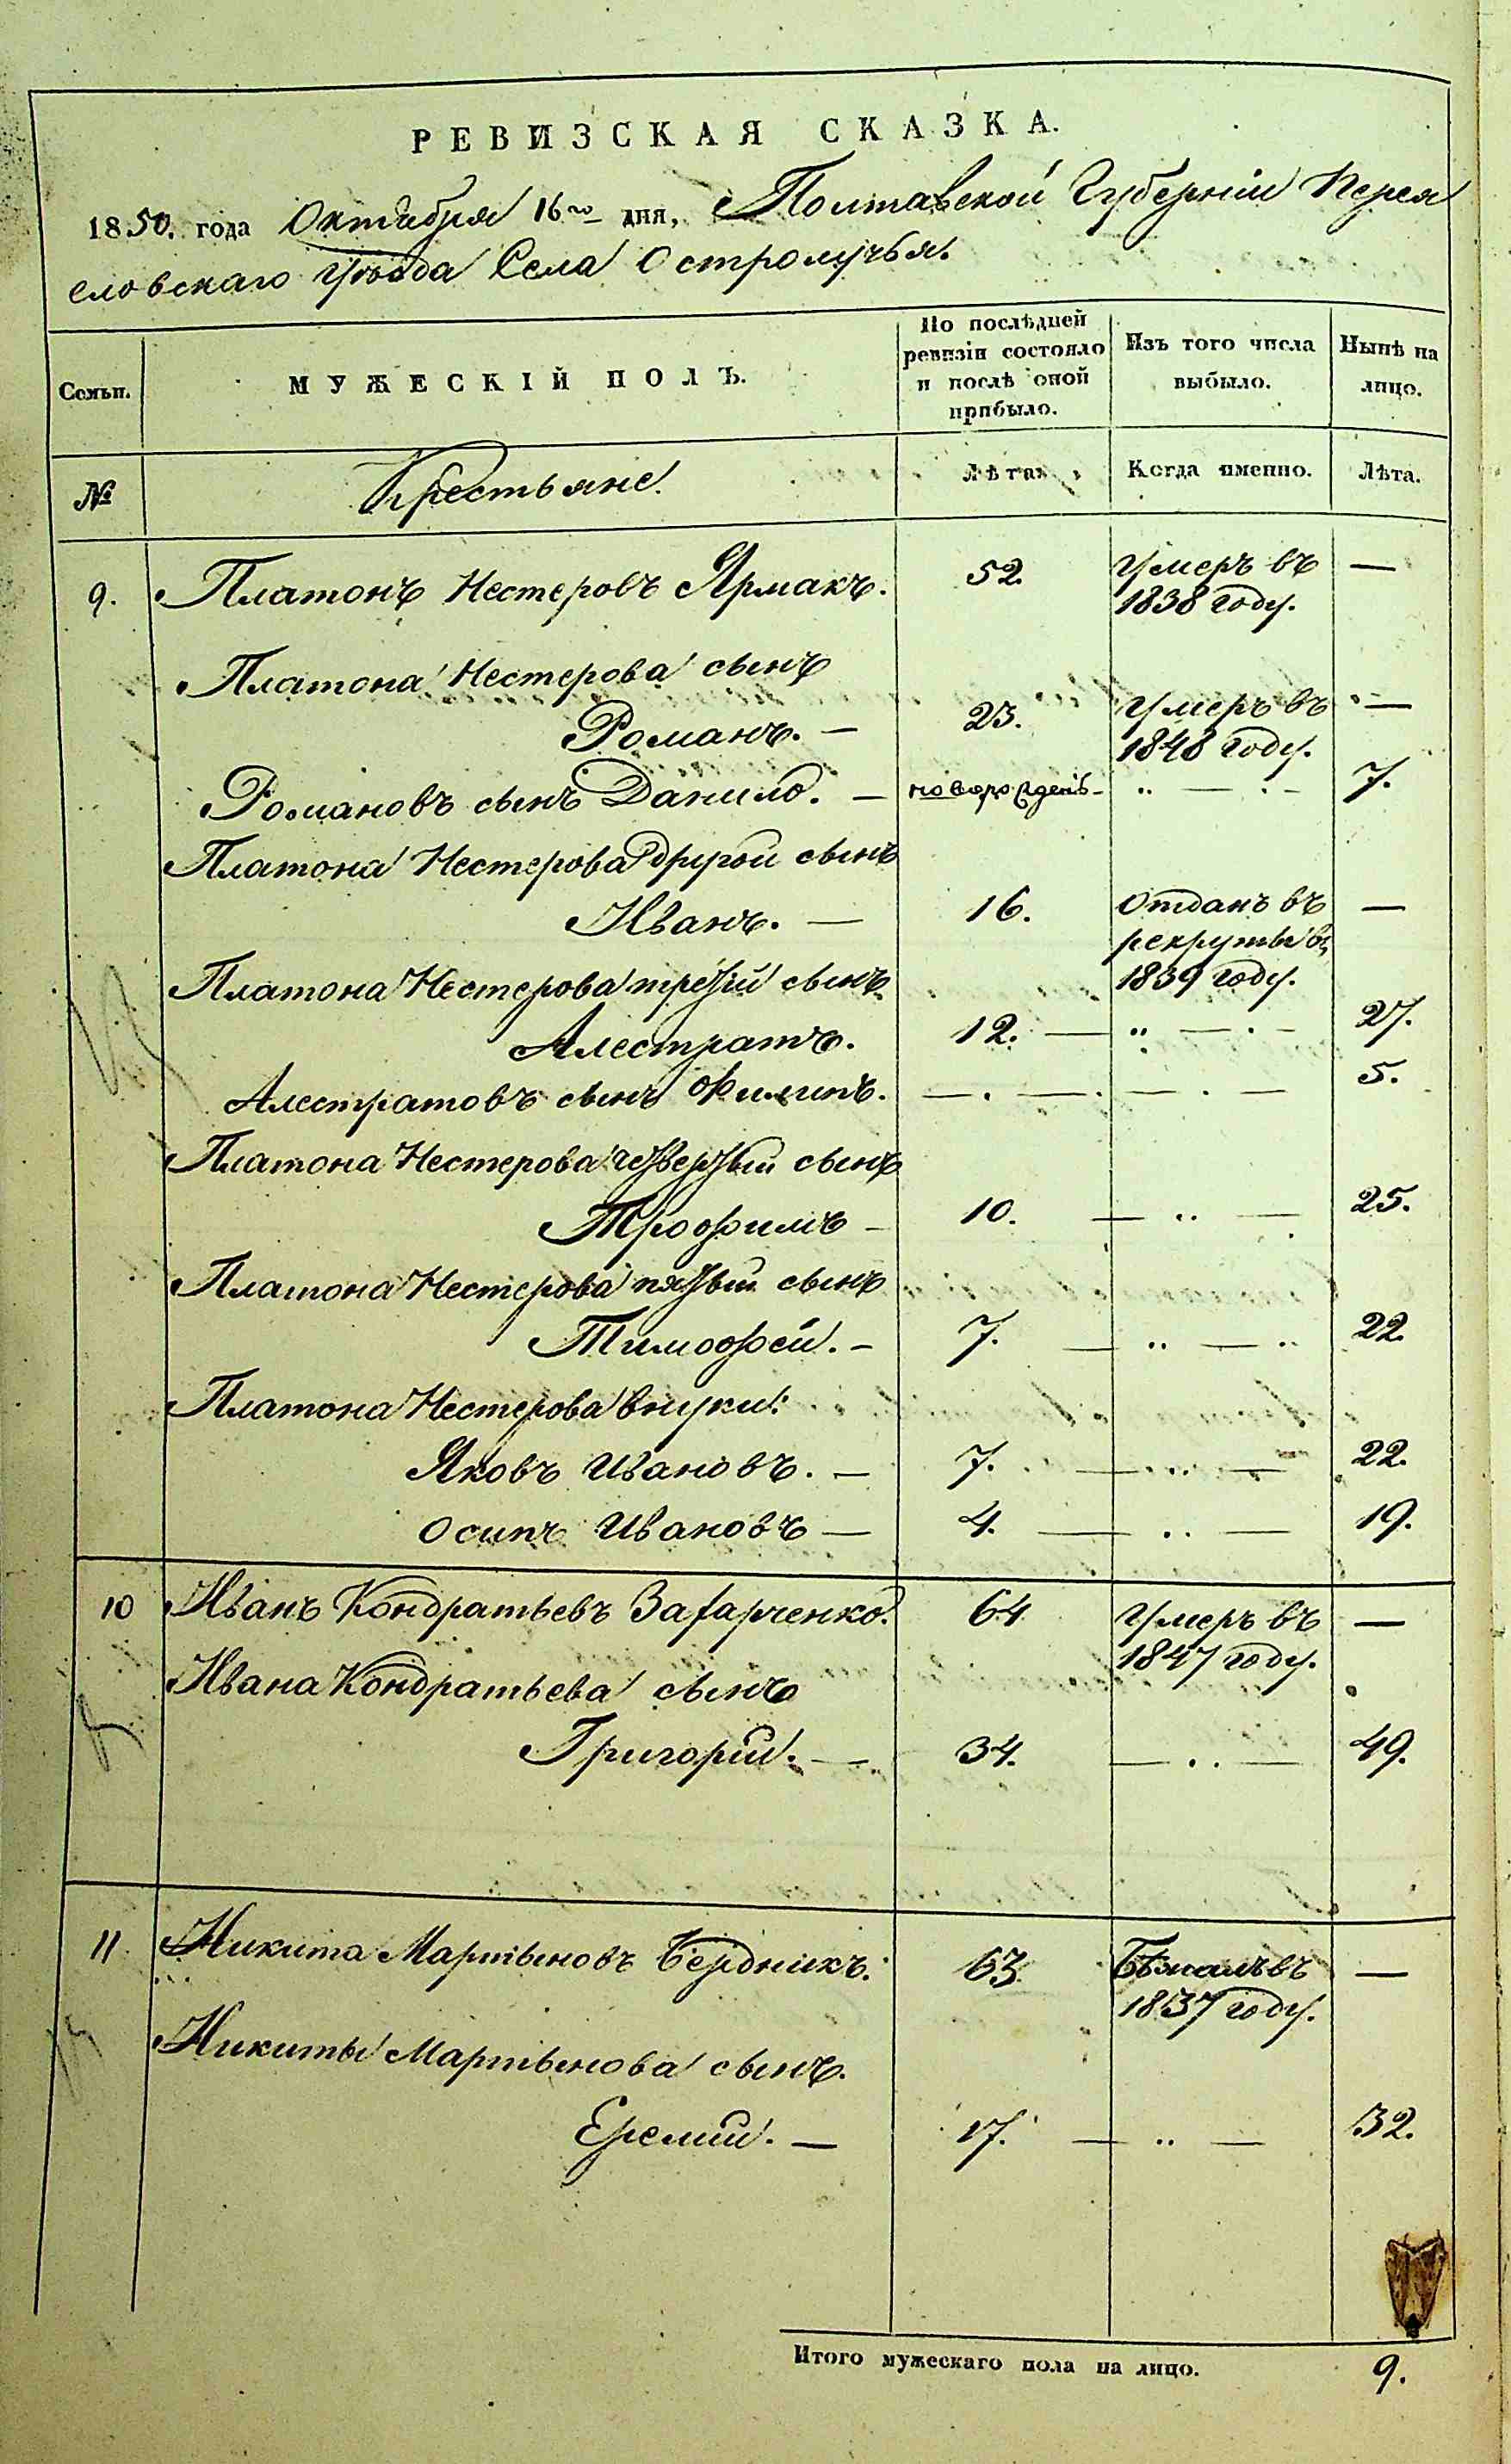 РЕВИЗСКАЯ СКАЗКА.
1850. года Октября 16го дня, Полтавской Губерніи Перея
словскаго уѣзда Села Остролучья.
Семьи.
МУЖЕСКІЙ ПОЛЪ.
По послѣдней
ревизіи состояло
и послѣ оной
прибыло.
Изъ того числа
выбыло.
Нынѣ на
лицо.
№
Крестьяне.
Лѣта.
Когда именно.
Лѣта.
9. Платонъ Нестеровъ Ярмакъ. 52. Умеръ въ —
1838 году.
Платона Нестерова сынъ
Романъ. — 23. Умеръ въ —
1848 году.
Романовъ сынъ Данило. — новорожденъ — 7.
Платона Нестерова другой сынъ
Иванъ. — 16. Отданъ въ —
рекруты въ
1839 году.
Платона Нестерова третій сынъ
Алестратъ. 12. — 27.
Алестратовъ сынъ Филипъ. — 5.
Платона Нестерова четвертый сынъ
Трофимъ — 10. — 25.
Платона Нестерова пятый сынъ
Тимофей. — 7. — 22.
Платона Нестерова внуки:
Яковъ Ивановъ. — 7. — 22.
Осипъ Ивановъ — 4. — 19.
10 Иванъ Кондратьевъ Захарченко. 64 Умеръ въ —
1847 году.
Ивана Кондратьева сынъ
Григорій. — 34. — 49.
11 Никита Мартыновъ Бердникъ. 63. Бѣжалъ въ —
1837 году.
Никиты Мартынова сынъ.
Еремій. — 17. — 32.
Итого мужескаго пола на лицо. 9.